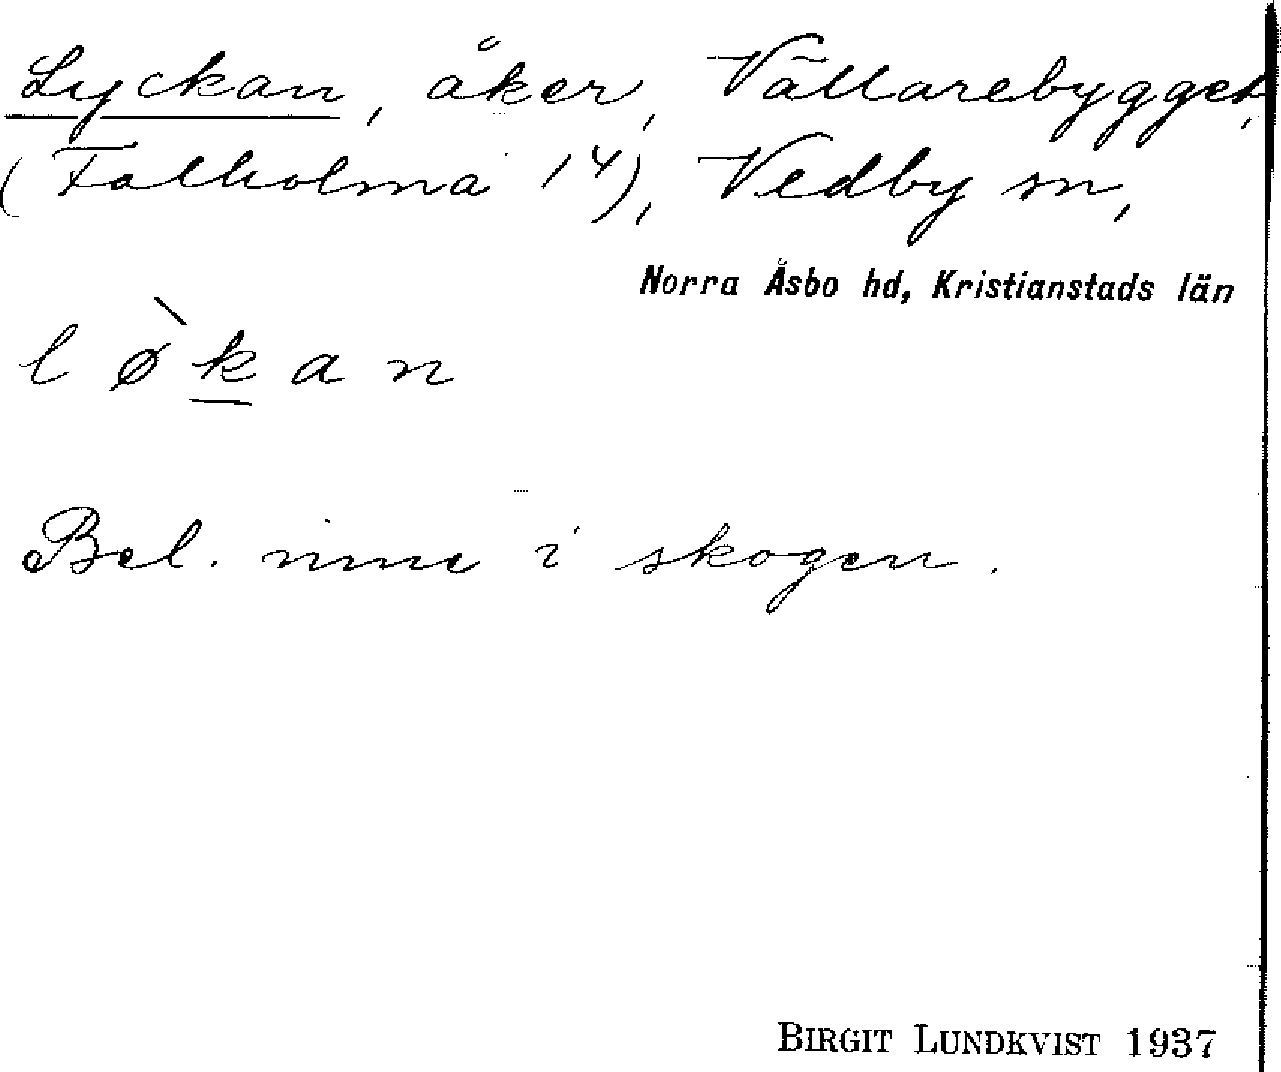 Lyckan, åker, Vällarebygget,
(Falholma 14), Vedby sn,
Norra Åsbo hd, Kristianstads län
lø̀kan
Bel. inne i skogen.
BIRGIT LUNDKVIST 1937